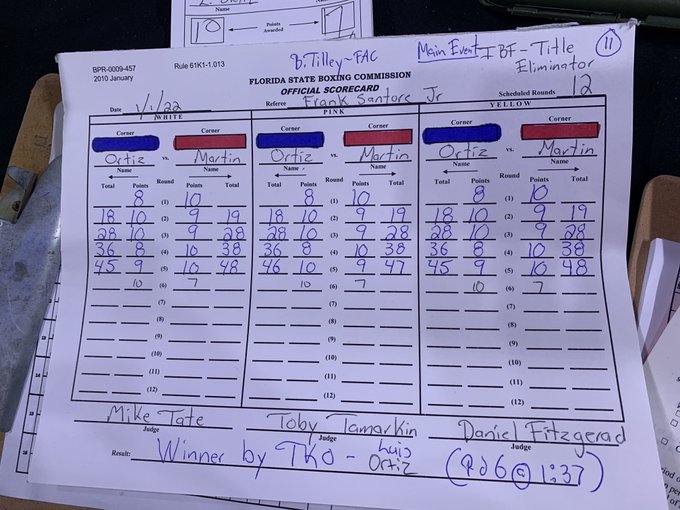 L. Ortiz
Name Name
10 Points Awarded 7
BPR-0009-457 Rule 61K1-1.013
2010 January
B. Tilley ~ FAC Main Event IBF - Title Eliminator 11
FLORIDA STATE BOXING COMMISSION
OFFICIAL SCORECARD
Date 1/1/22 Referee Frank Santore Jr Scheduled Rounds 12
WHITE PINK YELLOW
Corner Corner Corner Corner Corner Corner
Ortiz vs. Martin Ortiz vs. Martin Ortiz vs. Martin
Name Name Name
Total Points Round Points Total Total Points Round Points Total Total Points Round Points Total
8 (1) 10 8 (1) 10 8 (1) 10
18 10 (2) 9 19 18 10 (2) 9 19 18 10 (2) 9 19
28 10 (3) 9 28 28 10 (3) 9 28 28 10 (3) 9 28
36 8 (4) 10 38 36 8 (4) 10 38 36 8 (4) 10 38
45 9 (5) 10 48 46 10 (5) 9 47 45 9 (5) 10 48
10 (6) 7 10 (6) 7 10 (6) 7
(7) (7) (7)
(8) (8) (8)
(9) (9) (9)
(10) (10) (10)
(11) (11) (11)
(12) (12) (12)
Mike Tate Toby Tamarkin Daniel Fitzgerad
Judge Judge Judge
Result: Winner by TKO - Luis Ortiz (Rd 6 @ 1:37)